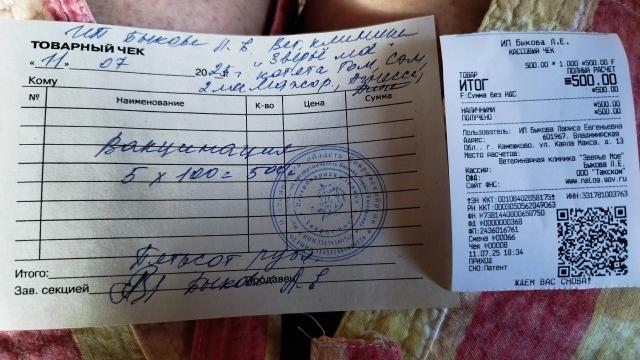 ИП Быкова Л. Е. Вет. клиника
ТОВАРНЫЙ ЧЕК
"Зверьё моё"
« 11 » 07 2025 г.
Кому
котята Том, Сэм,
2
№ Наименование К-во Цена Сумма
Вакцинация
5 x 100 = 500
Пятьсот руб
Итого:
Зав. секцией Быкова Продавец Л. Е
ИП Быкова Л.Е.
КАССОВЫЙ ЧЕК
500.00 * 1.000 =500.00
ТОВАР ПОЛНЫЙ РАСЧЕТ
ИТОГ =500.00
F:Сумма без НДС =500.00
НАЛИЧНЫМИ =500.00
ПОЛУЧЕНО =500.00
Пользователь: ИП Быкова Лариса Евгеньевна
Адрес: 601967, Владимирская
Обл., г. Камешково, ул. Карла Маркса, д. 13
Место расчетов:
Ветеринарная клиника "Зверье Мое"
Кассир: Быкова Л.Е.
ОФД: ООО "Такском"
Сайт ФНС: www.nalog.gov.ru
ЗН ККТ:00108402858175 ИНН:331781003763
РН ККТ:0003050562049063
ФН №7381440800658750
ФД №0000000368
ФП:2436016761
Смена №00066
Чек №00008
11.07.25 18:34
ПРИХОД
СНО:Патент
ЖДЕМ ВАС СНОВА!